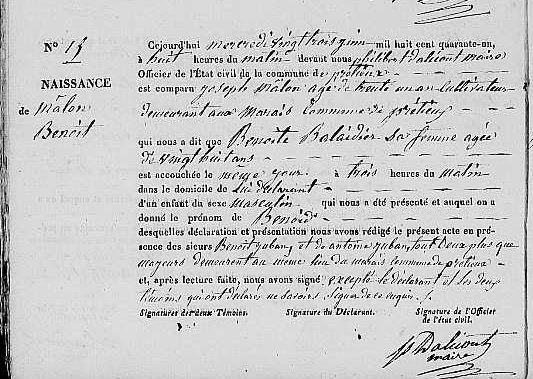 N° 15
NAISSANCE
de Mâlon
Benoit
Cejourd'hui mercredi vingt trois juin mil huit cent quarante-un,
à huit heures du matin devant nous philibert Dalicout maire
Officier de l'État civil de la commune de prétieux
est comparu joseph Mâlon age de trente un an Cultivateur
demeurant aux Marais Commune de prétieux
qui nous a dit que Benoite Baladier Sa femme agée
de vingt huit ans
est accouchée le meme jour à trois heures du matin
dans le domicile de Lui déclarant
d'un enfant du sexe masculin qui nous a été présenté et auquel on a
donné le prénom de Benoid
desquelles déclaration et présentation nous avons rédigé le présent acte en pré-
sence des sieurs Benoit juban, et de antoine juban, tout deux plus que
mageurs demeurent au même lieu du marais commune de prétieux
et, après lecture faite, nous avons signé excepté le déclarant et les deux
témoins qui ont déclarés ne savoirs Signer de ce enquis ./.
Signatures des deux Témoins. Signature du Déclarant. Signature de l'Officier
de l'état civil.
maire